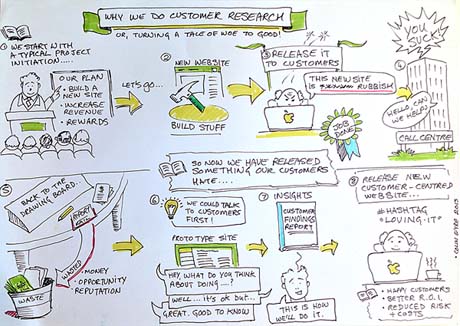 WHY WE DO CUSTOMER RESEARCH
OR, TURNING A TALE OF WOE TO GOOD!
① WE START WITH
A TYPICAL PROJECT
INITIATION....
OUR PLAN
• BUILD A
NEW SITE
• INCREASE
REVENUE
• REWARDS
LET'S GO...
②
NEW WEBSITE
BUILD STUFF
③ RELEASE IT
TO CUSTOMERS
THIS NEW SITE
IS RUBBISH
JOB
DONE
④
YOU
SUCK!
HELLO, CAN
WE HELP?
CALL CENTRE
SO NOW WE HAVE RELEASED
SOMETHING OUR CUSTOMERS
HATE...
⑤
BACK TO THE
DRAWING BOARD..
WASTED
• MONEY
• OPPORTUNITY
• REPUTATION
WASTE
⑥
WE COULD TALK
TO CUSTOMERS
FIRST!
PROTOTYPE SITE
HEY, WHAT DO YOU THINK
ABOUT DOING ....?
WELL... IT'S OK BUT...
GREAT. GOOD TO KNOW
⑦ INSIGHTS
CUSTOMER
FINDINGS
REPORT
THIS IS HOW
WE'LL DO IT.
⑧ RELEASE NEW
CUSTOMER-CENTRED
WEBSITE...
#HASHTAG
"LOVING-IT"
• HAPPY CUSTOMERS
• BETTER R.O.I.
• REDUCED RISK
+ COSTS